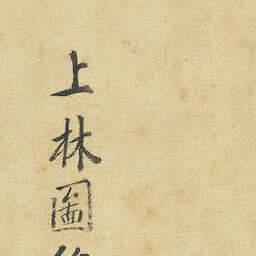 上林圖